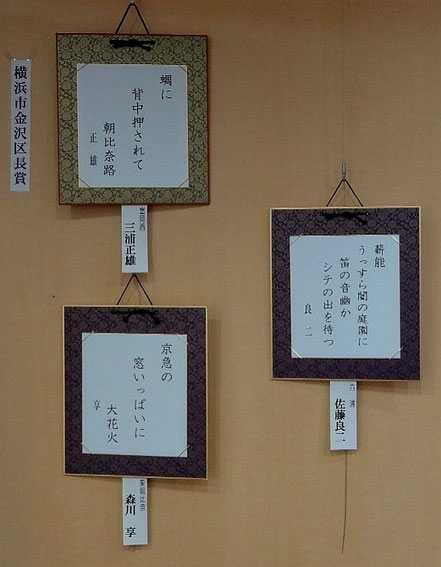 横浜市金沢区長賞
蜩に
背中押されて
朝比奈路
正雄
三浦正雄
薪能
うっすら闇の庭園に
笛の音幽か
シテの出を待つ
良二
六浦
佐藤良二
京急の
窓いっぱいに
大花火
享
森川 享